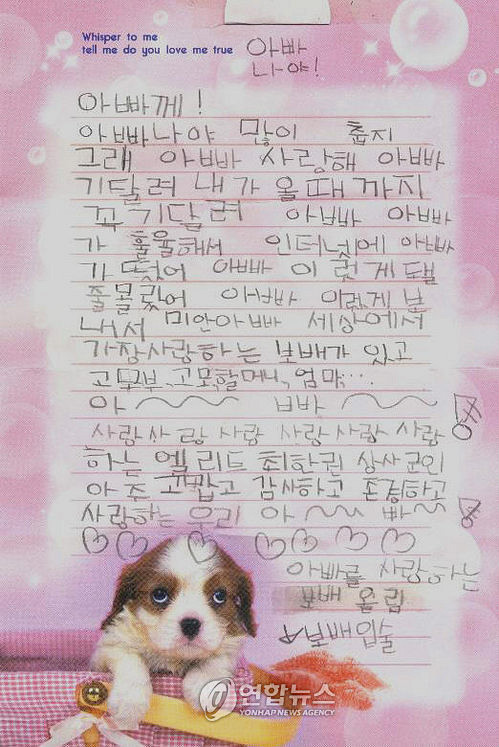 Whisper to me
tell me do you love me true
아빠
나야!
아빠께!
아빠나야 많이 춥지
그래 아빠 사랑해 아빠
기달려 내가 올때까지
꼭 기달려 아빠 아빠
가 훌율해서 인터넷에 아빠
가 떴어 아빠 이렇게 될
줄몰랐어 아빠 이런게 보
내서 미안아빠 세상에서
가장사랑하는 보배가 있고
고무부, 고모할머니, 엄마...
아 빠
사랑사랑 사랑 사랑사랑 사랑
하는 엘리트 최한권 상사군인
아주 고맙고 감사하고 존경하고
사랑하는 우리 아 빠
아빠를 사랑하는
보배 올림
보배입술
연합뉴스
YONHAP NEWS AGENCY